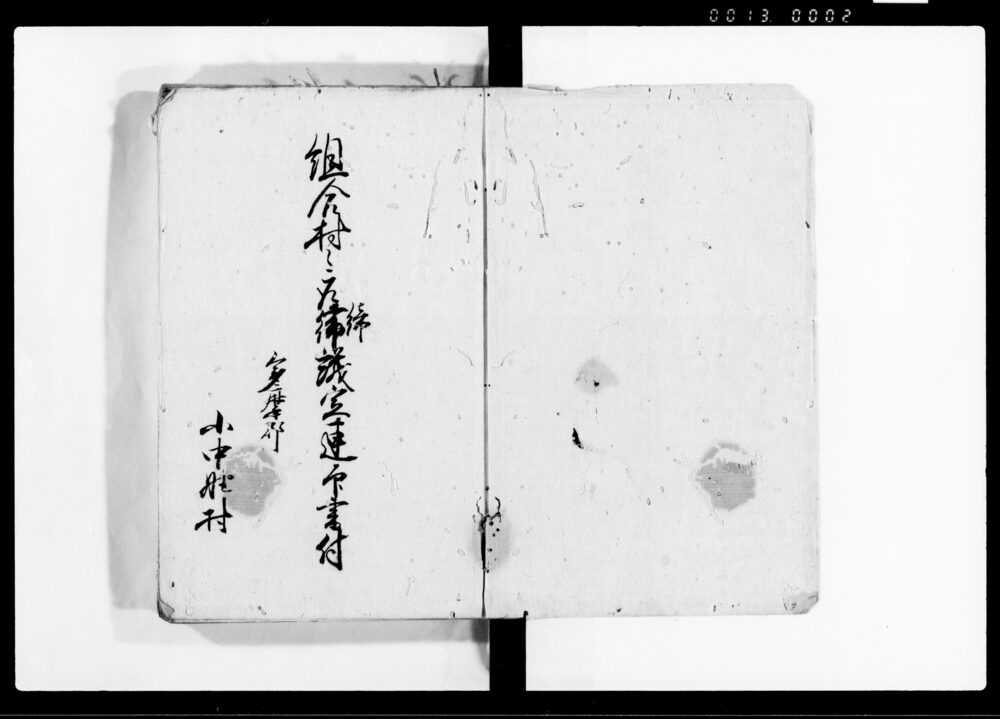 0013 0002
組合村々取締議定連印書付
締
多摩郡
小中野村